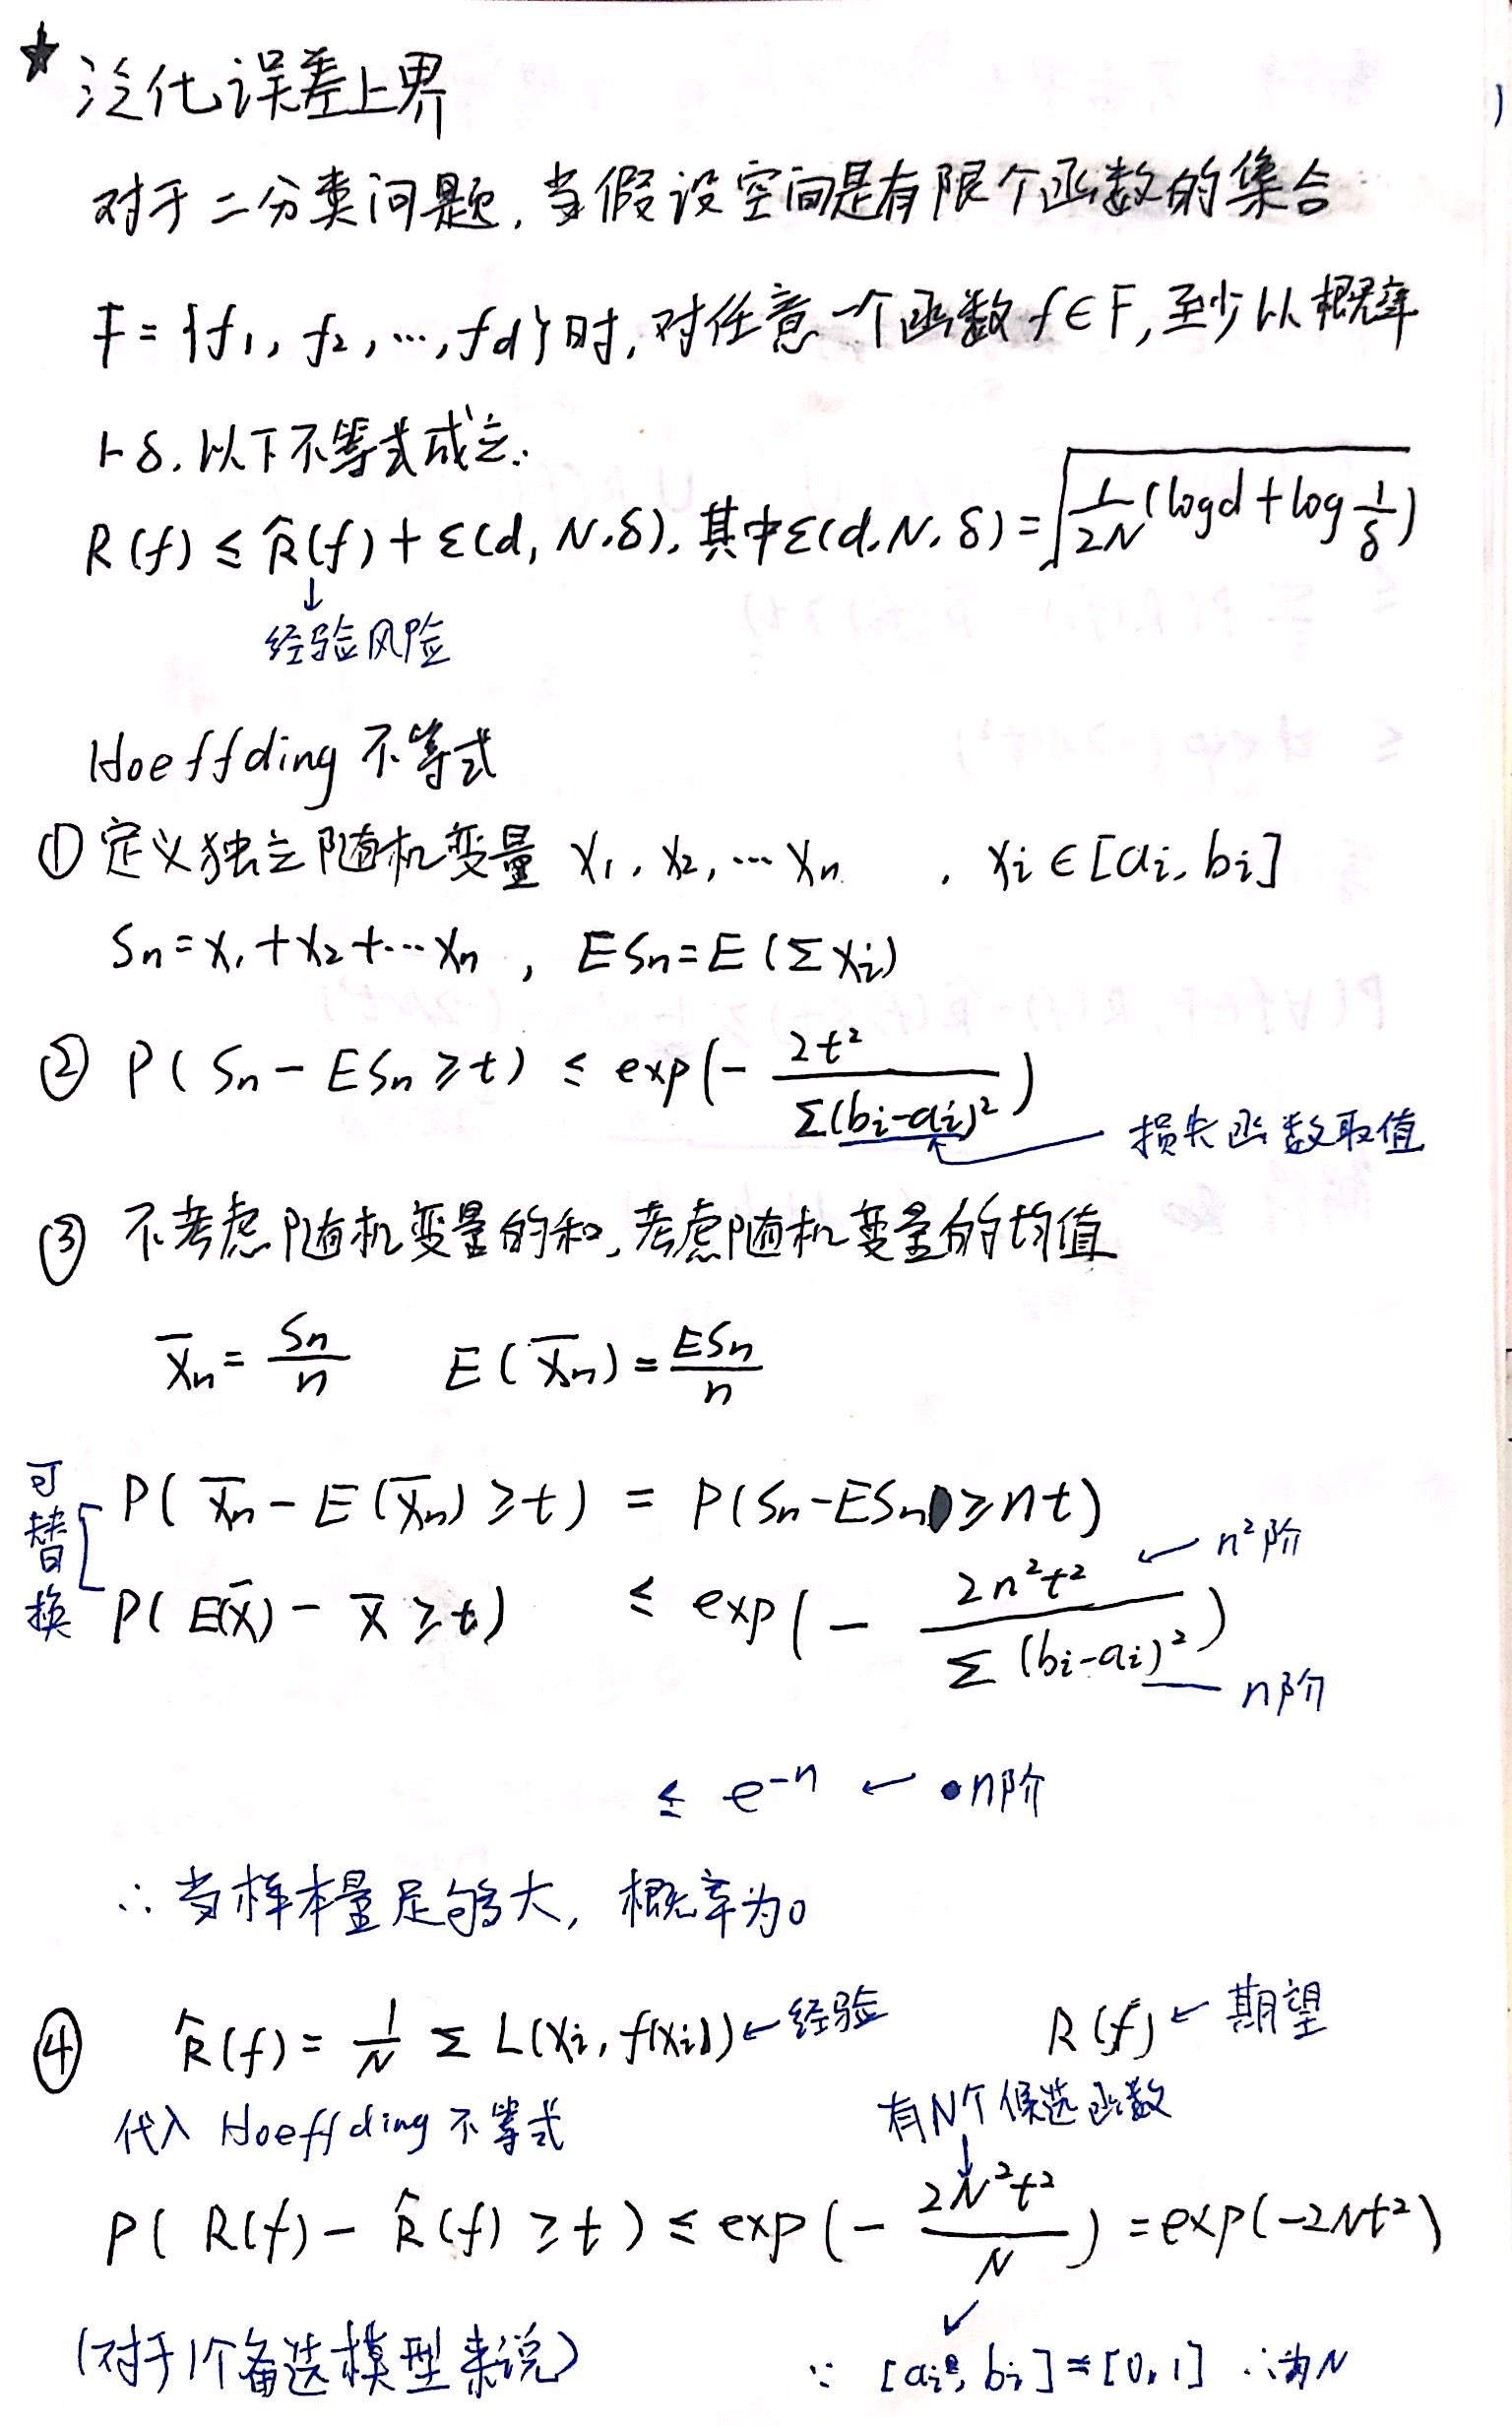 ★ 泛化误差上界
对于二分类问题,当假设空间是有限个函数的集合
F = {f₁, f₂, …, fd}时,对任意一个函数 f∈F,至少以概率
1-δ,以下不等式成立:
R(f) ≤ R̂(f) + ε(d, N, δ), 其中ε(d, N, δ) = √(1/2N (logd + log 1/δ))
↓
经验风险
Hoeffding 不等式
① 定义独立随机变量 X₁, X₂, … Xn , Xi ∈ [ai, bi]
Sn = X₁ + X₂ + … Xn , ESn = E(ΣXi)
② P(Sn - ESn ≥ t) ≤ exp(- 2t² / Σ(bi-ai)²)
← 损失函数取值
③ 不考虑随机变量的和,考虑随机变量的均值
X̄n = Sn/n E(X̄n) = ESn/n
可替换
P(X̄n - E(X̄n) ≥ t) = P(Sn - ESn ≥ nt)
P(E(X̄) - X̄ ≥ t) ≤ exp(- 2n²t² / Σ(bi-ai)²)
← n²阶
— n阶
≤ e⁻ⁿ ← n阶
∴ 当样本量足够大, 概率为0
④ R̂(f) = 1/N Σ L(Xi, f(Xi)) ← 经验 R(f) ← 期望
代入 Hoeffding 不等式 有N个候选函数
↓
P(R(f) - R̂(f) ≥ t) ≤ exp(- 2N²t² / N) = exp(-2Nt²)
(对于1个备选模型来说) ∵ [ai, bi] = [0, 1] ∴为N